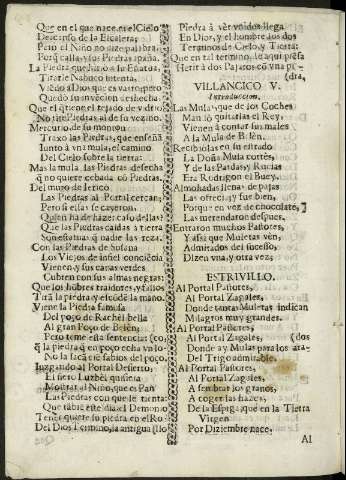 Que en el que nace, en el Cielo
Descanso de la Escalera,
Pero el Niño no dize palabra,
Porq̃ calla, y los Piedras
La Piedra que hirió a su Estatua,
Tirarle Nabuco intenta,
Viendo al Dios que
Quedò su invencion deshecha.
Que el q̃ tiene el tejado de vidrio
No tire Piedras al de su vezino.
Mercurio de su monton
Traxo las Piedras, que enseñã
Junto à vna mula, el camino
Del Cielo sobre la tierra:
Mas la mula las Piedras desecha
q̃ no quiere cebada cõ Piedras.
Del muro de Jericò
Las Piedras al Portal cercan;
Pero si ellas se cayeron,
Quien ha de hazer caso dellas?
Que las Piedras caidas à tierra
Son estatuas q̃ nadie las reza.
Con las Piedras de Susana
Los Viejos de infiel conciencia
Vienen, y sus canas verdes
Cubren con sus almas negras:
Que los hõbres traidores, y falsos
Tirã la piedra, y escõdẽ la mano.
Viene la Piedra famosa
Del poço de Rachel bella
Al gran Poço de Belèn,
Pero teme esta sentencia: (co,
q̃ la piedra q̃ en poço echa vn lo-
No la sacà cie sabios del poço.
Juzgando al Portal Desierto,
El fiero Luzbèl quisiera
Mostrar al Niño, que es Pan
Las Piedras con que le tienta:
Que tãbiẽ este dia el Demonio
Tenèr quiere su piedra en el Ro
Del Dios Termino, la antigua (llo
Piedra à ver vnidos llega
En Dios, y el hombre los dos
Terminos de Cielo, y Tierra:
Que en tal termino, se aqui presa
Herir à dos Pajaros cõ vna pi-
(dra,
VILLANCICO V.
Introduccion.
Las Mulas, que de los Coches
Mandò quitarlas el Rey,
Vienen à contar sus males
A la Mula de Belèn.
Recibiòlas en su estrado
La Doña Mula cortès,
Y de las Pardas, y Rucias
Era Rodrigon el Buey.
Almohadas llenas de pajas
Las ofrece, y fue bien,
Porque en vez de chocolate,
Las merendaron despues.
Entraron muchos Pastores,
Y assi que Muletas vèn,
Admirados del sucesso,
Dizen vna, y otra vez;
ESTRIVILLO.
Al Portal Pastores,
Al Portal Zagales,
Donde tantas Muletas indican
Milagros muy grandes.
Al Portal Pastores,
Al Portal Zagales, (dos
Donde ay Mulas para los ara-
Del Trigo admirable.
Al Portal Pastores,
Al Portal Zagales,
A sembrar los granos,
A coger las hazes,
De la Espiga, que en la Tierra
Virgen
Por Diziembre nace.
Al